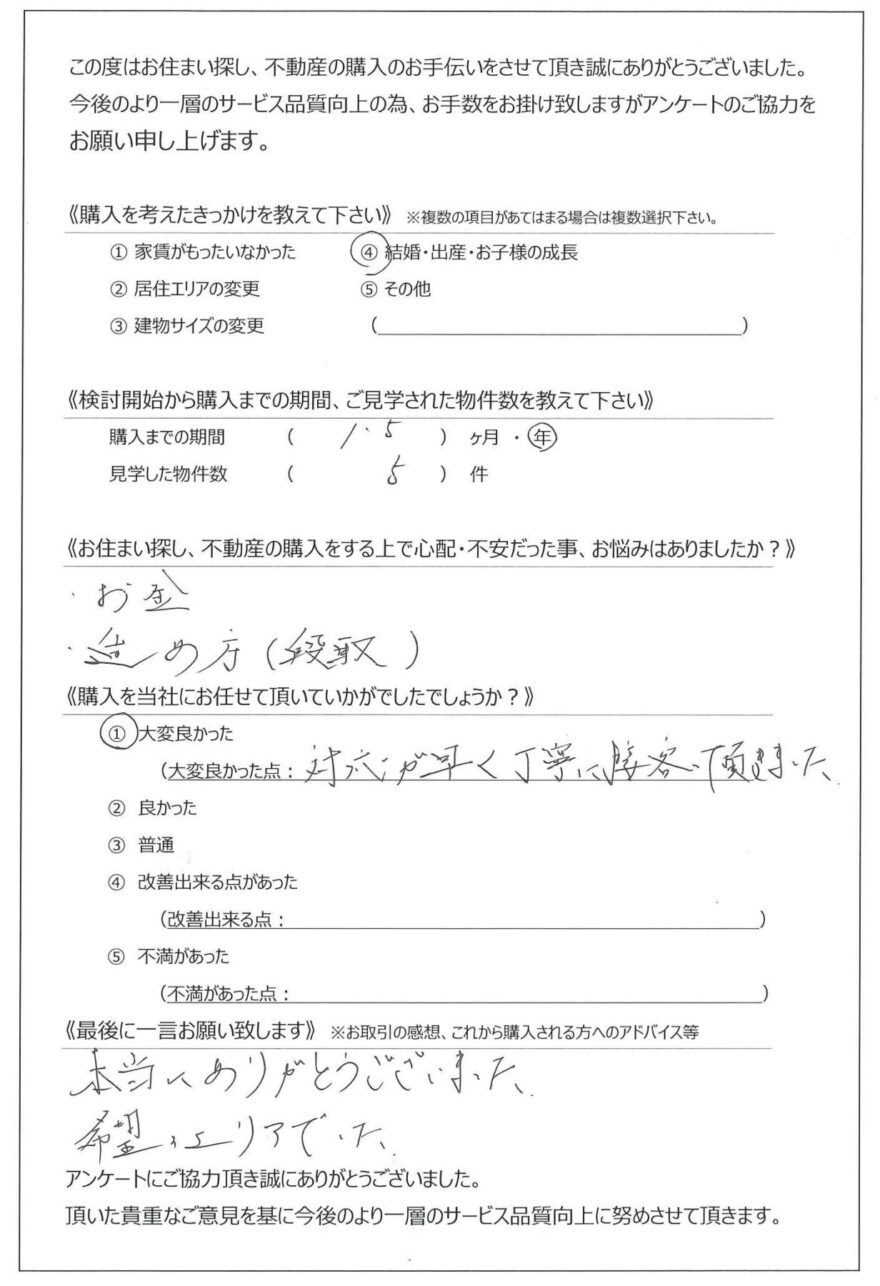 この度はお住まい探し、不動産の購入のお手伝いをさせて頂き誠にありがとうございました。
今後のより一層のサービス品質向上の為、お手数をお掛け致しますがアンケートのご協力を
お願い申し上げます。
《購入を考えたきっかけを教えて下さい》 ※複数の項目があてはまる場合は複数選択下さい。
① 家賃がもったいなかった ④ 結婚・出産・お子様の成長
② 居住エリアの変更 ⑤ その他
③ 建物サイズの変更 ( )
《検討開始から購入までの期間、ご見学された物件数を教えて下さい》
購入までの期間 ( 1.5 ) ヶ月 ・ 年
見学した物件数 ( 5 ) 件
《お住まい探し、不動産の購入をする上で心配・不安だった事、お悩みはありましたか？》
・お金
・進め方(段取)
《購入を当社にお任せて頂いていかがでしたでしょうか？》
① 大変良かった
(大変良かった点： 対応が早く丁寧に接客して頂きました。
② 良かった
③ 普通
④ 改善出来る点があった
(改善出来る点： )
⑤ 不満があった
(不満があった点： )
《最後に一言お願い致します》 ※お取引の感想、これから購入される方へのアドバイス等
本当にありがとうございました。
希望のエリアでした。
アンケートにご協力頂き誠にありがとうございました。
頂いた貴重なご意見を基に今後のより一層のサービス品質向上に努めさせて頂きます。